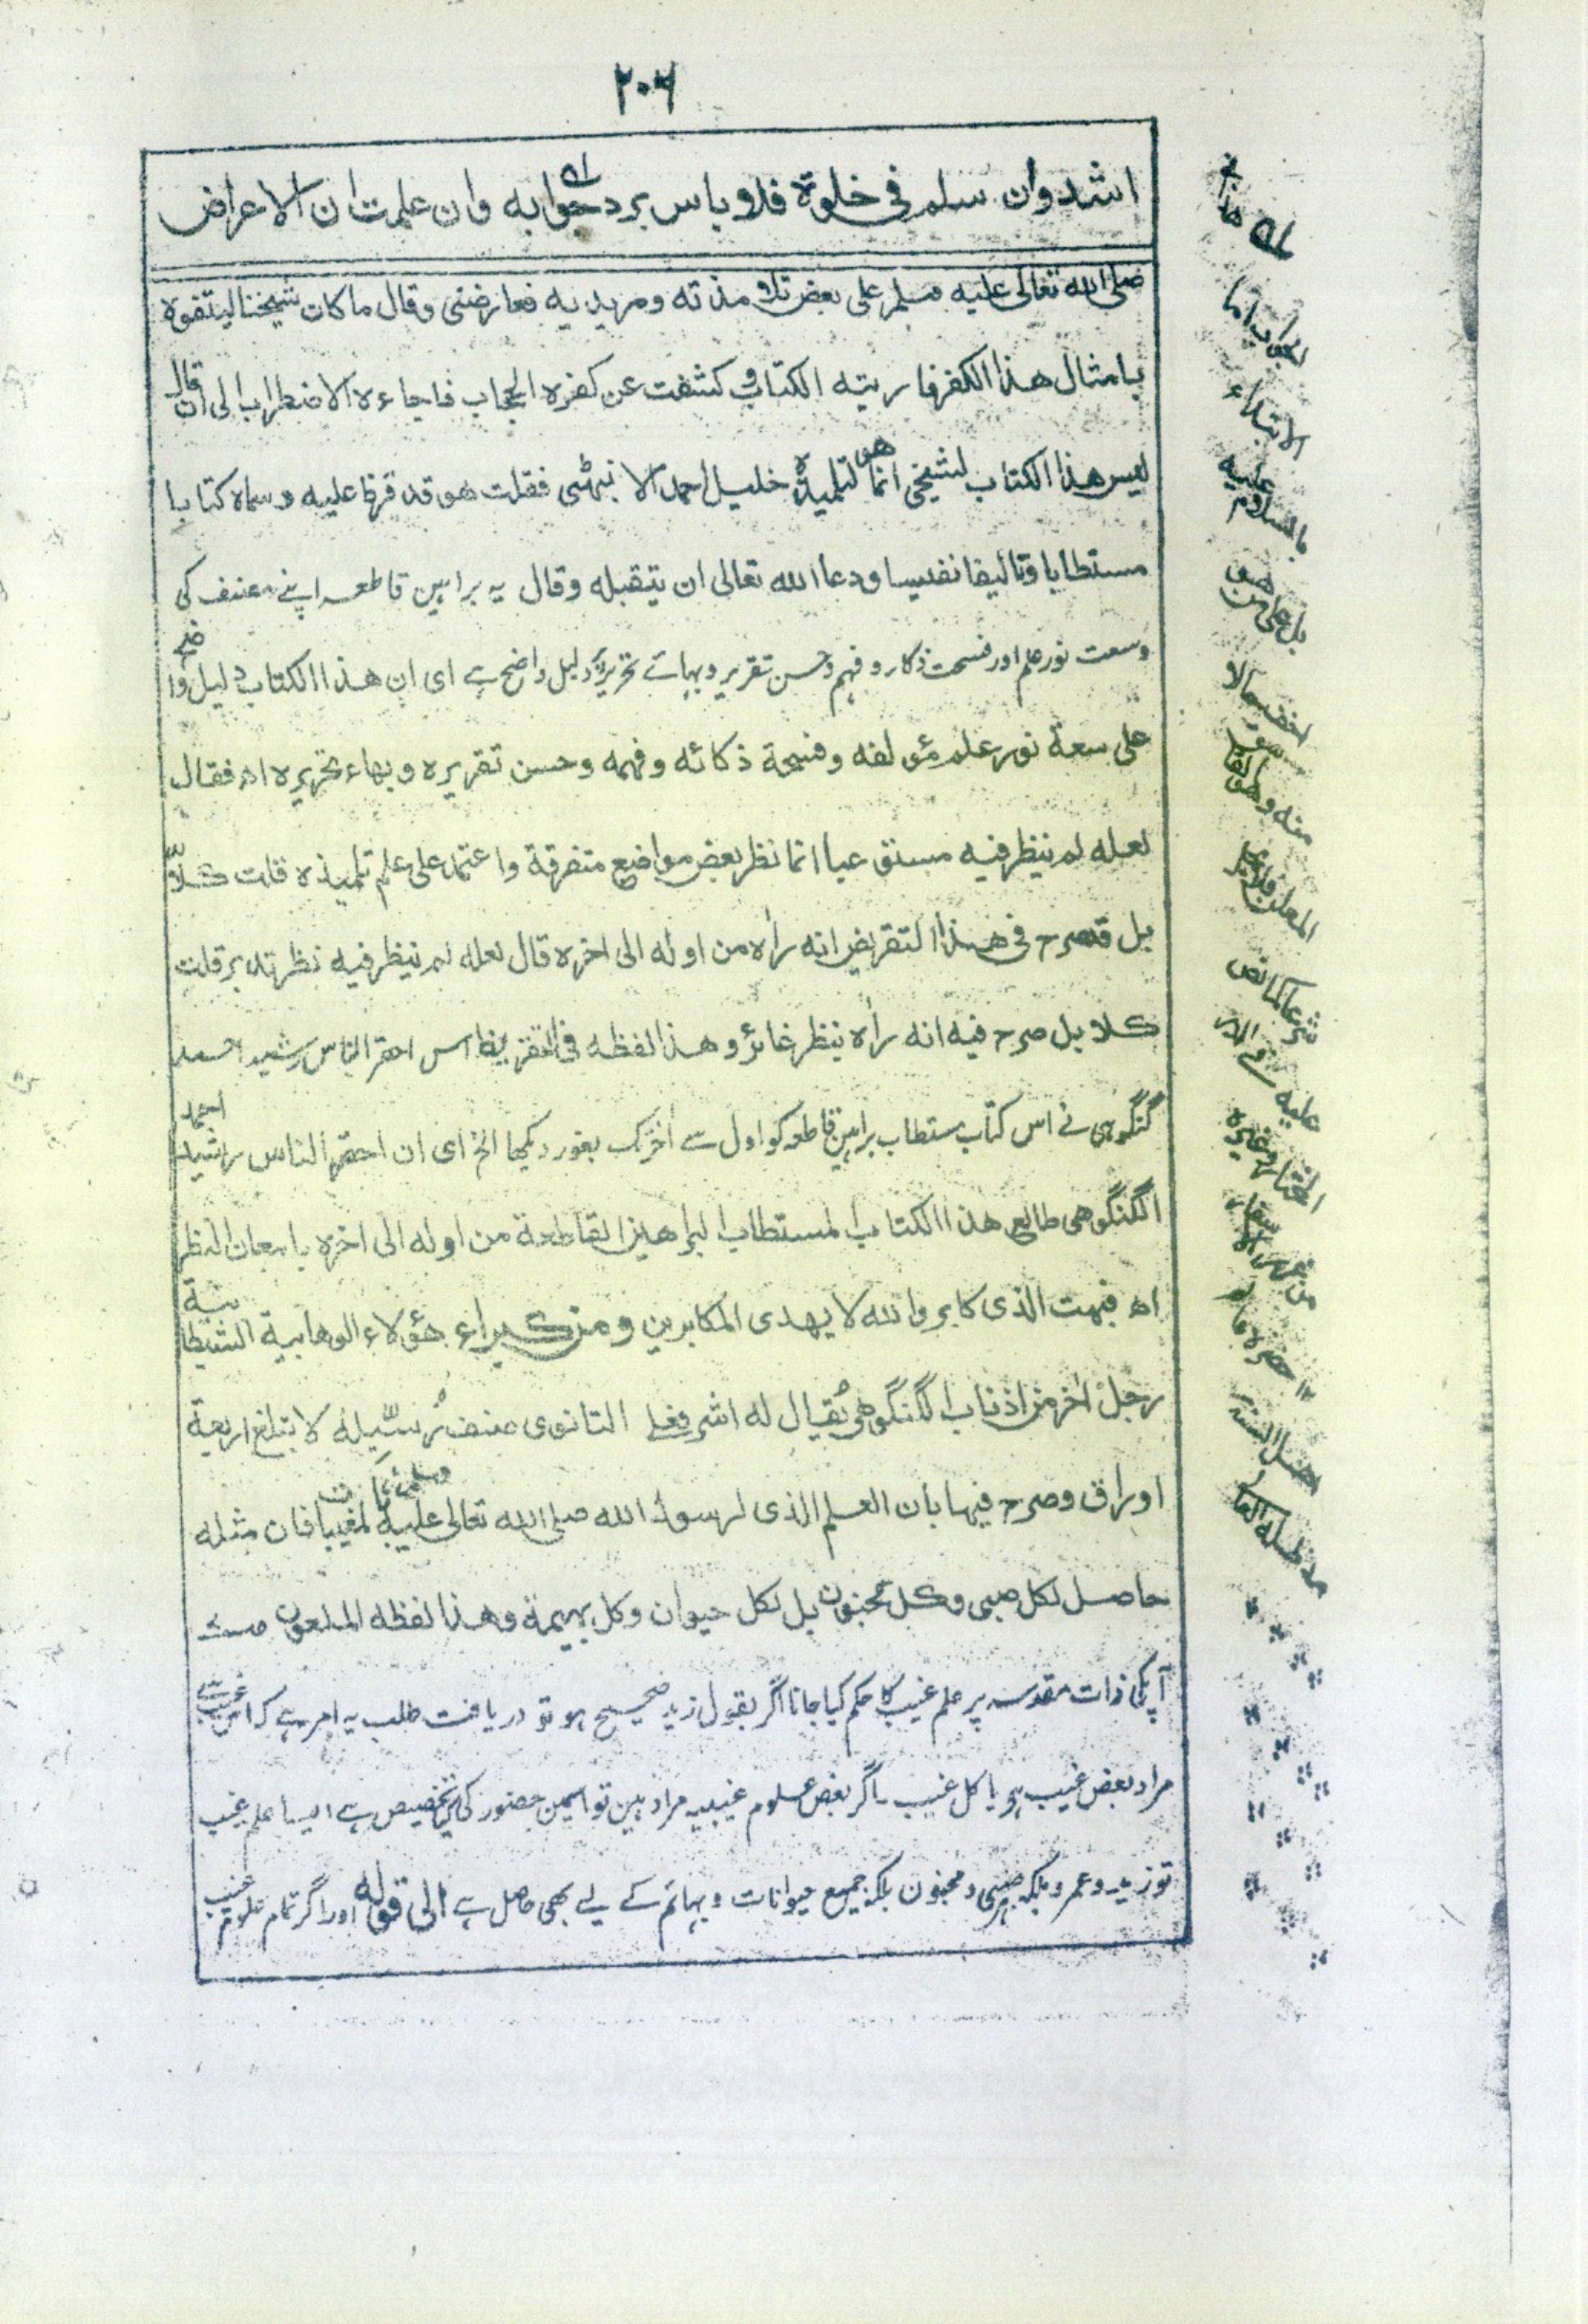 ٢٠٦
اشد وان سلم فی خلوة فلا باس برد جوابه وان علمت ان الاعراض
صلی الله تعالی علیه وسلم علی بعض تلامذته ومریدیه فعارضنی وقال ما کان شیخنا لیتفوه
بامثال هذا الکفر فاریته الکتاب وکشفت عن کفره الحجاب فاجاءه الاضطراب الی ان قال
لیس هذا الکتاب لشیخی انما هو لتلمیذه خلیل احمد الانبهٹی فقلت هو قد قرظ علیه وسماه کتابا
مستطابا وتالیفا نفیسا ودعا الله تعالی ان یتقبله وقال یہ براہین قاطعہ اپنے مصنف کی
وسعت نور علم اور فسحت ذکاء و فہم و حسن تقریر و بہائے تحریر پر دلیل واضح ہے ای ان هذا الکتاب دلیل واضح
علی سعة نور علم مؤلفه وفسحة ذکائه وفهمه وحسن تقریره وبهاء تحریره اھ فقال
لعله لم ینظر فیه مستوعبا انما نظر بعض مواضع متفرقة واعتمد علی علم تلمیذه قلت کلّا
بل قد صرح فی هذا التقریض انه راٰه من اوله الی اخره قال لعله لم ینظر فیه نظر تدبر قلت
کلا بل صرح فیه انه راٰه بنظر غائر وهذا لفظه فی التقریظ اس احقر الناس رشید احمد
گنگوہی نے اس کتاب مستطاب براہین قاطعہ کو اول سے آخر تک بغور دیکھا الخ ای ان احقر الناس رشید احمد
الگنگوهی طالع هذا الکتاب المستطاب البراهین القاطعة من اوله الی اخره بامعان النظر
اھ فبهت الذی کابر والله لا یهدی المکابرین ومن کبراء هؤلاء الوهابیة الشیطانیة
رجل اٰخر من اذناب الگنگوهی یُقال له اشرفعلی التانوی صنف رُسَیّلة لا تبلغ اربعة
اوراق وصرح فیها بان العلم الذی لرسول الله صلی الله تعالی علیه وسلم بالمغیبات فان مثله
حاصل لکل صبی وکل مجنون بل لکل حیوان وکل بهیمة وهذا لفظه الملعون
آپکی ذات مقدسہ پر علم غیب کا حکم کیا جانا اگر بقول زید صحیح ہو تو دریافت طلب یہ امر ہے کہ اس غیب سے
مراد بعض غیب ہے یا کل غیب۔ اگر بعض علوم غیبیہ مراد ہیں تو اسمین حضور کی کیا تخصیص ہے ایسا علم غیب
تو زید و عمرو بلکہ ہر صبی و مجنون بلکہ جمیع حیوانات و بہائم کے لیے بھی حاصل ہے الی قوله اور اگر تمام علوم غیب
له هذا فی
الجواب اما
الابتداء
بالسلام علیه
بل علی من هو
اخف حالا
منه وهو الفاسق
المعلن فلا یحل
شرعا کما نص
علیه فی الدر
المختار وغیره
من غرر الاسفار
اهل السنة
مد ظله العالی